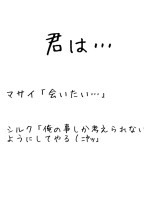 君は…
マサイ「会いたい…」
シルク「俺の事しか考えられない
ようにしてやる(ﾆﾔｯ」